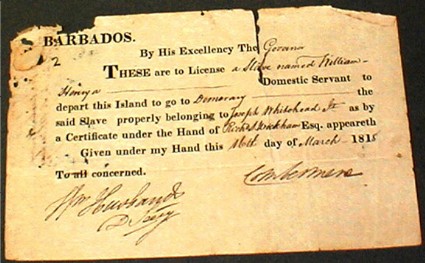 BARBADOS.
2
By His Excellency The Governor
THESE are to License a Slave named William
Henry a Domestic Servant to
depart this Island to go to Demerary the
said Slave properly belonging to Joseph Whitehead as by
a Certificate under the Hand of Richd Wickham Esq. appeareth
Given under my Hand this 16th day of March 181
To all concerned.
Combermere
Wm Husbands
D Secy